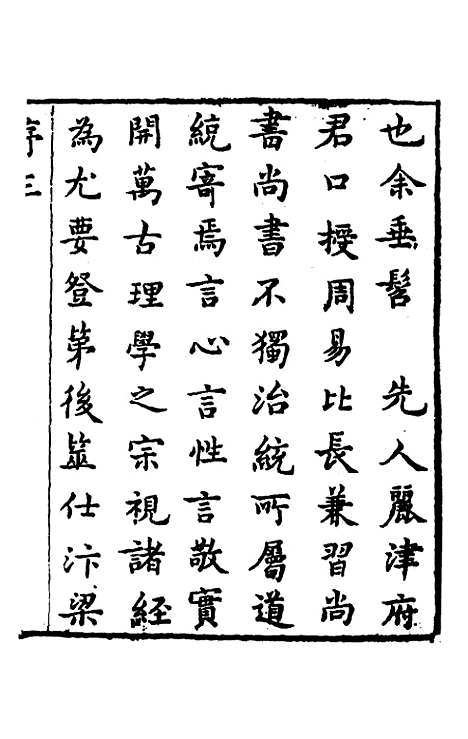 也余垂髫　先人麗津府
君口授周易比長兼習尚
書尚書不獨治統所屬道
統寄焉言心言性言敬實
開萬古理學之宗視諸經
為尤要登第後筮仕汴梁
序三